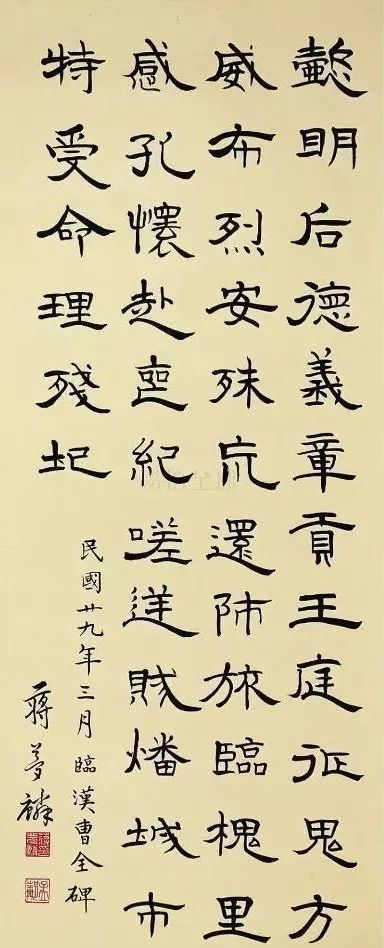 懿明后德義章貢王庭征鬼方
威布烈安殊荒還師旅臨槐里
感孔懷赴喪紀嗟逆賊燔城市
特受命理殘圮
民國廿九年三月臨漢曹全碑
蔣夢麟